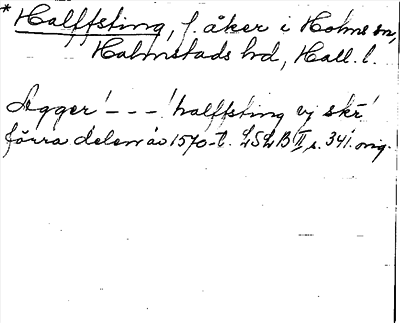 * Halffsting, f. åker i Holms sn,
Halmstads hd, Hall. l.
Agger' - - - 'halffsting vj skr'
förra delen av 1570-t. LSLB II s. 341. orig.